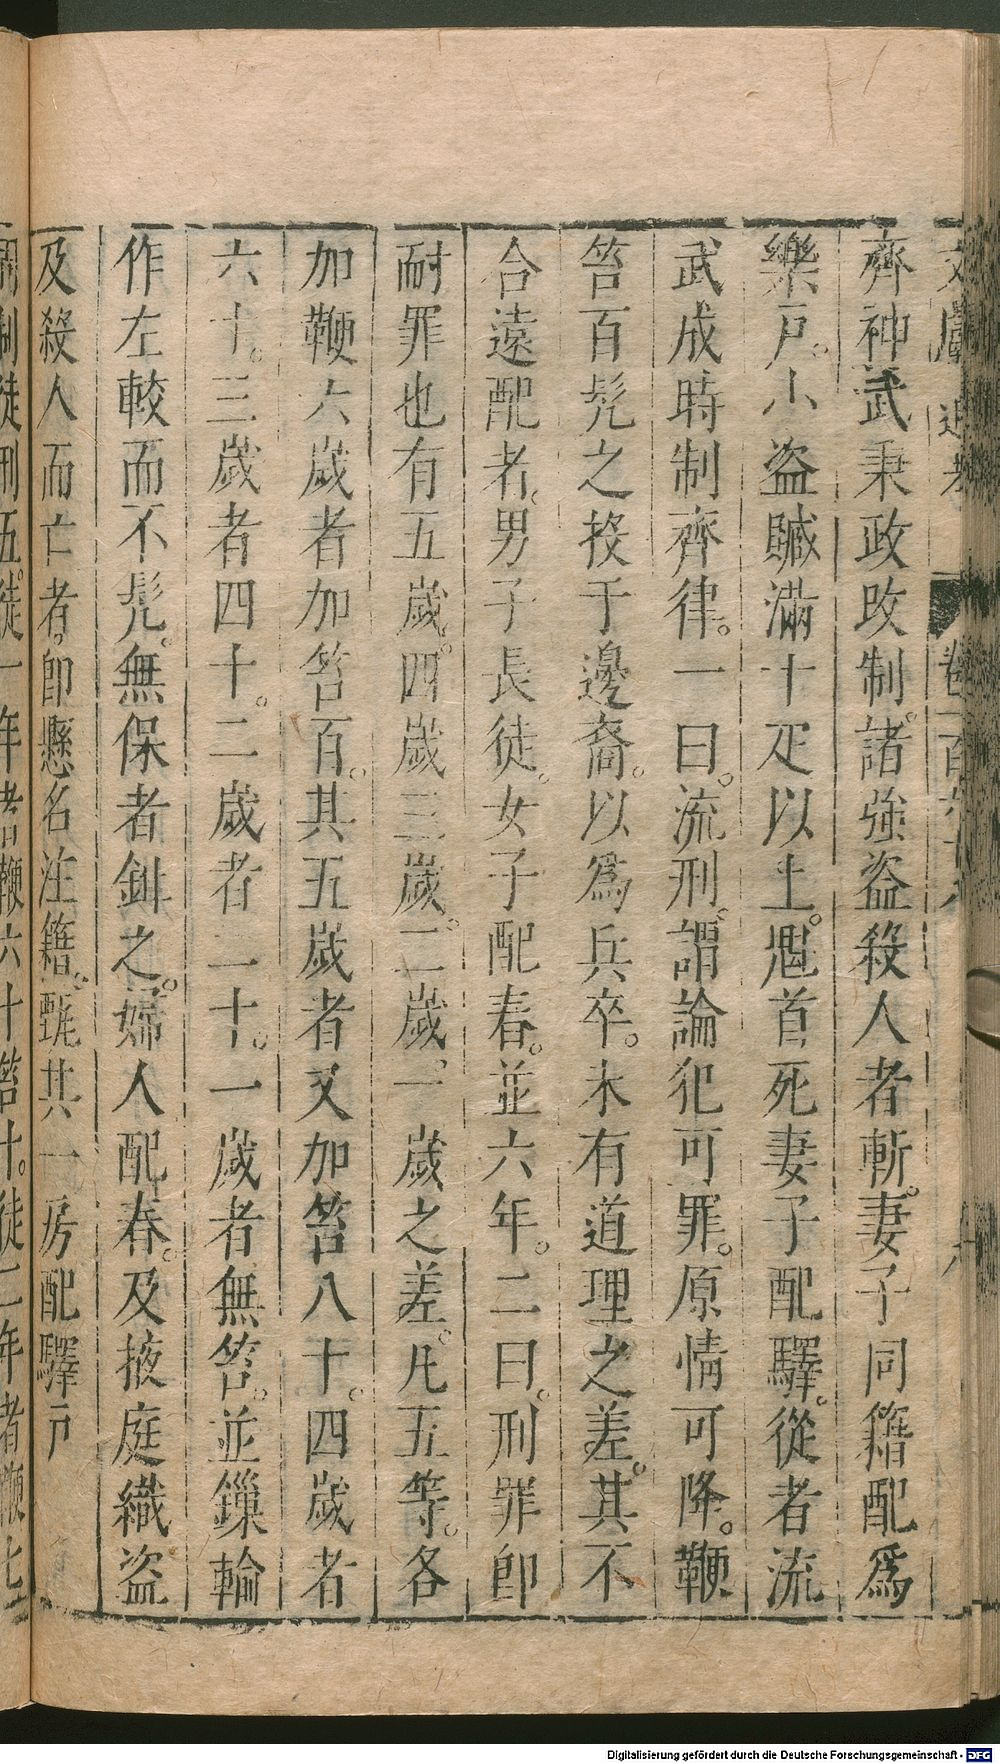 齊神武秉政改制。諸強盜殺人者斬。妻子同籍配爲
樂戶。小盜贓滿十疋以上。魁首死妻子配驛。從者流
武成時制齊律。一曰。流刑。謂論犯可罪。原情可降。鞭
笞百髠之投于邊裔。以爲兵卒。未有道里之差。其不
合遠配者。男子長徒。女子配舂。並六年。二曰。刑罪卽
耐罪也有五歲。四歲三歲。二歲。一歲之差。凡五等。各
加鞭六歲者加笞百。其五歲者又加笞八十。四歲者
六十。三歲者四十。二歲者二十。一歲者無笞。並鏁輪
作左較而不髠。無保者鉗之。婦人配舂。及掖庭織盜
及殺人而亡者。卽懸名注籍。甄其一房配驛戶
周制徒刑五。徒一年者鞭六十笞十。徒二年者鞭七
Digitalisierung gefördert durch die Deutsche Forschungsgemeinschaft - DFG